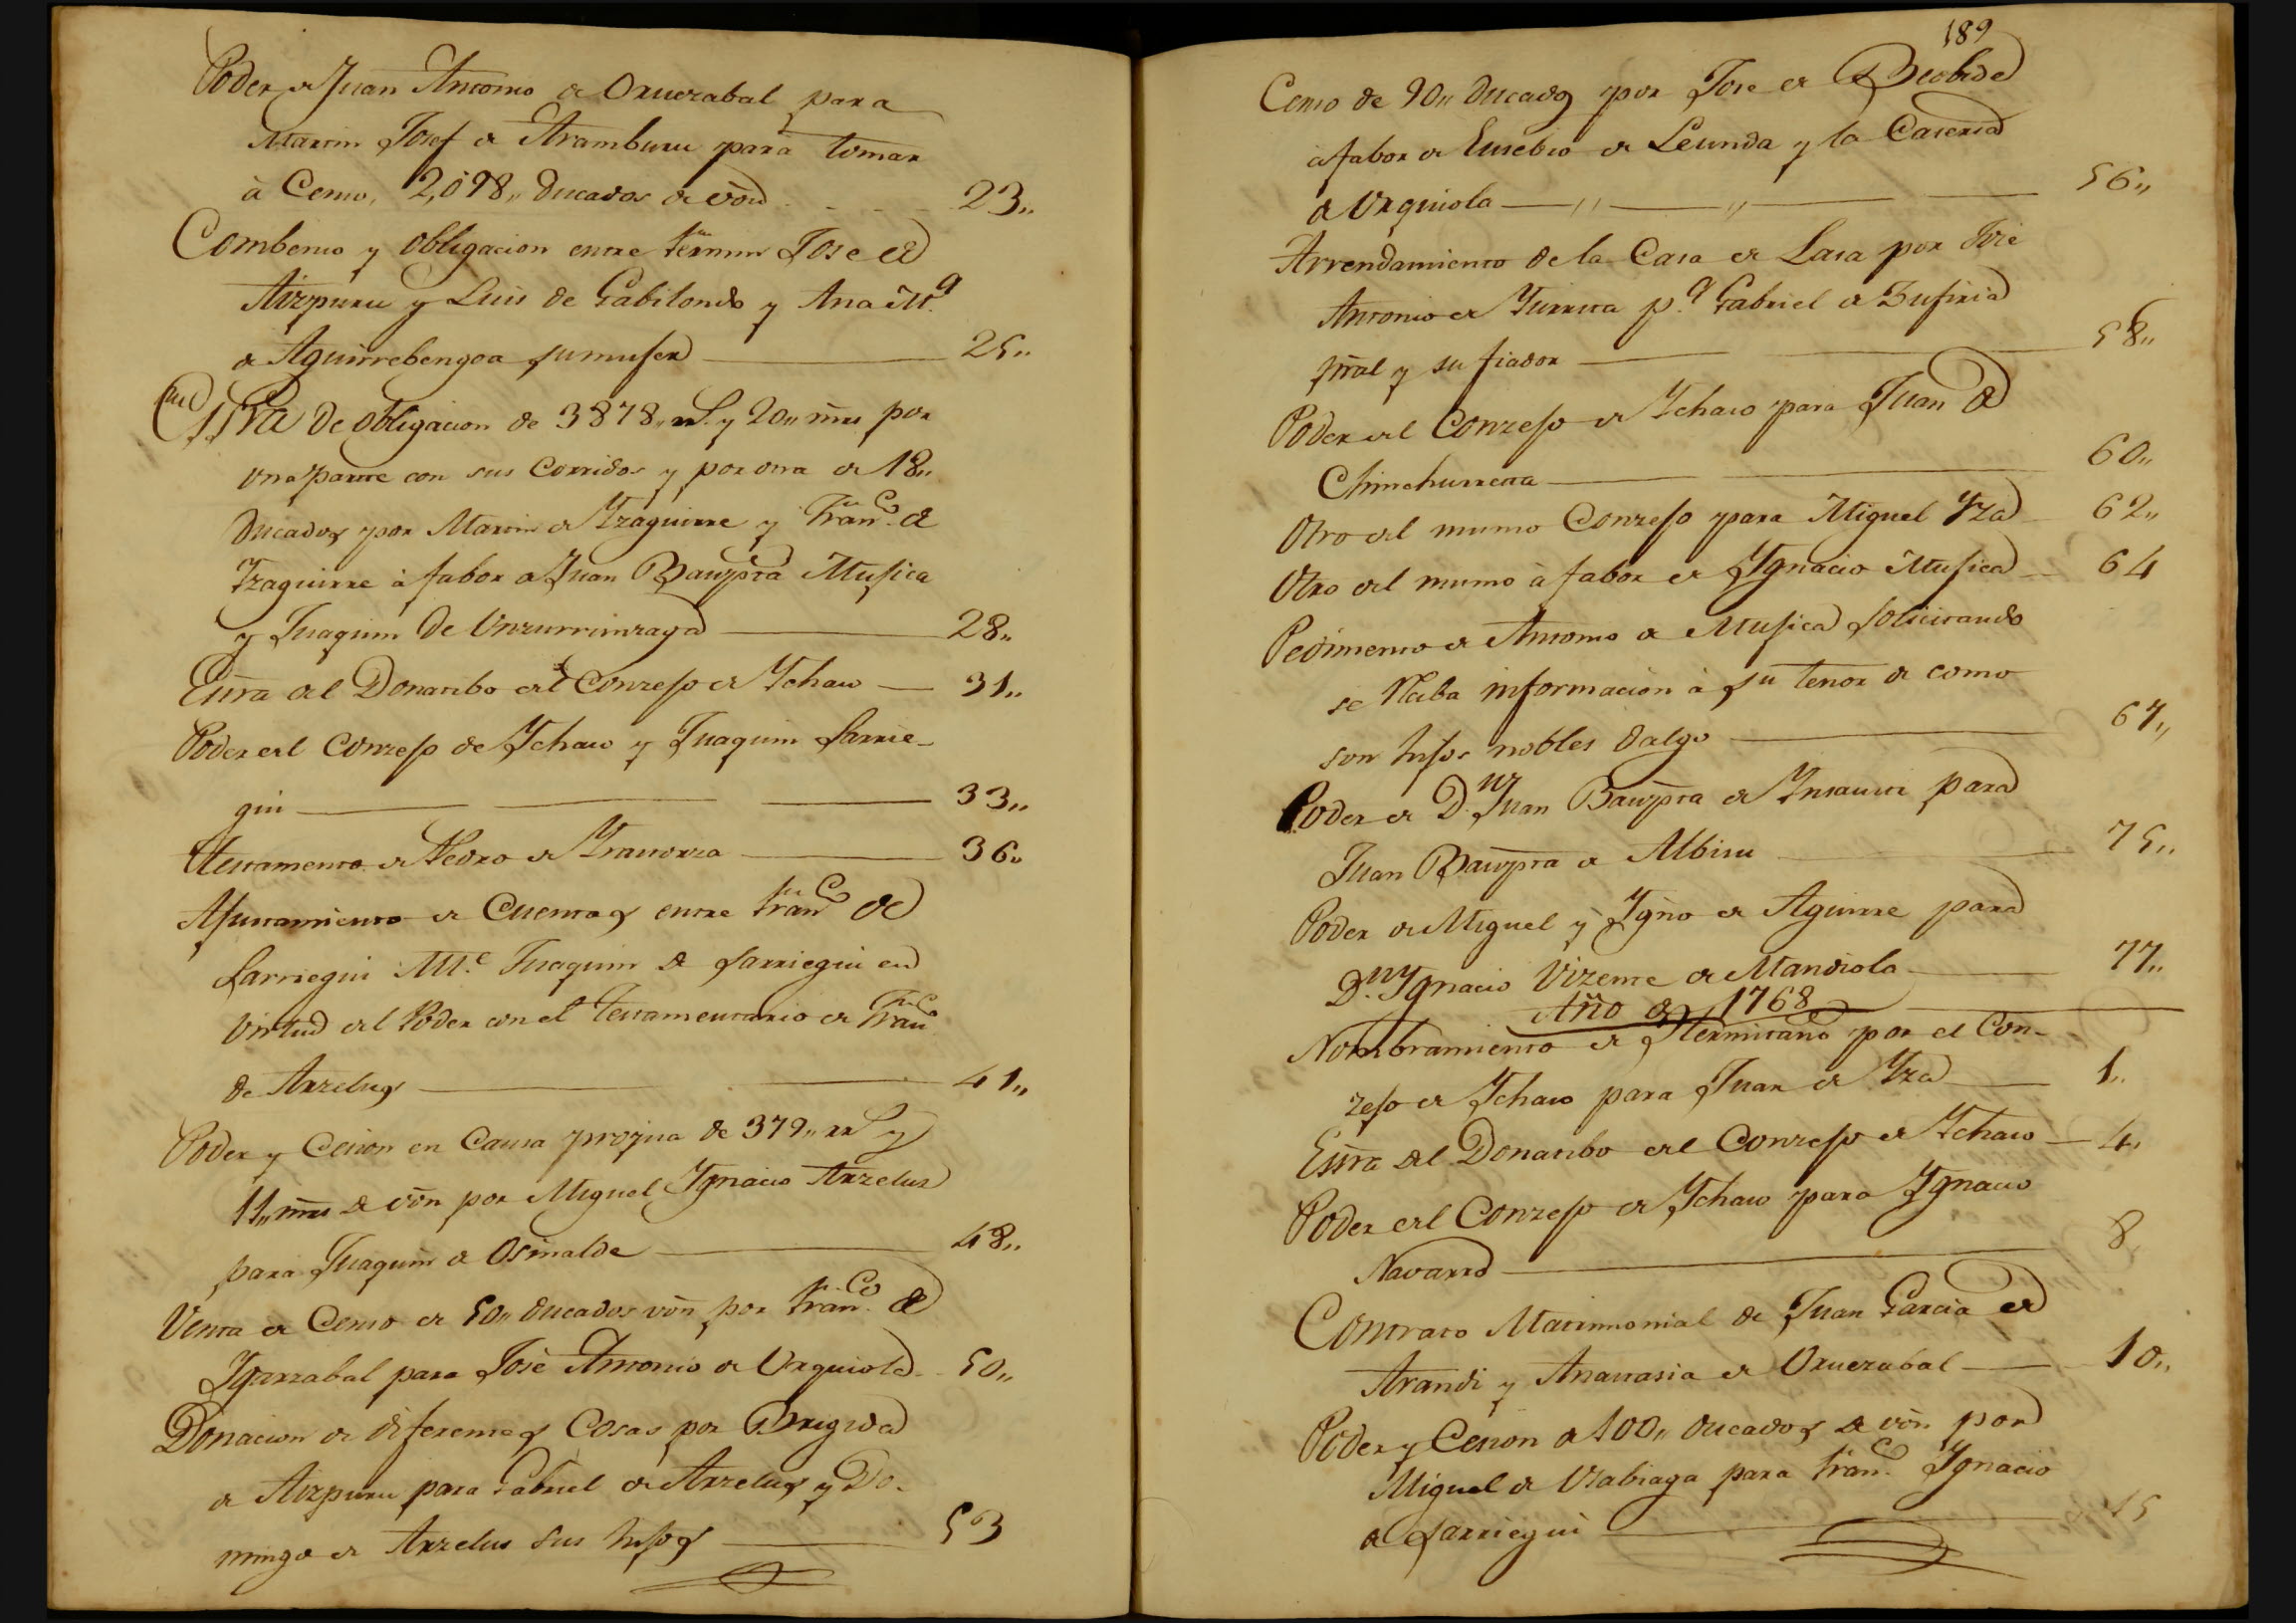 Poder de Juan Antonio de Oruezabal para
Martin Josef de Aramburu para tomar
à Censo, 2,098,, Ducados de von 23,,
Combenio y obligacion entre Fermin Jose de
Aizpuru y Luis de Gabilondo y Ana M.ª
de Aguirrebengoa su muger 25,,
Esra de obligacion de 3878,, rs. y 20,, mrs por
una parte con sus Corridos y por otra de 18,,
Ducados por Martin de Yzaguirre y Franco. de
Yzaguirre à fabor de Juan Baupta Mugica
y Juaquin de Unzurrunzaga 28,,
Essra del Donatibo del Conzejo de Ychaso 31,,
Poder del Conzejo de Ychaso y Juaquin Sarrie-
gui 33,,
Testamento de Pedro de Yraeta 36,,
Ajustamiento de Cuentas entre Franco de
Sarriegui Juaquin de Sarriegui en
Virtud del Poder con el testamentario de Franco
de Arzelus 41,,
Poder y Cesion en Causa propia de 379,, rrs y
11,, mrs de von por Miguel Ygnacio Arzelus
para Juaquin de Osinalde 48,,
Venta de Censo de 50,, ducados von por Franco. de
Ygarzabal para Josè Antonio de Urquiola 50,,
Donacion de diferentes Cosas por Brigida
de Aizpuru para Gabriel de Arzelus y Do-
minga de Arzelus sus hijos 53
189
Censo de 90,, Ducados por Jose de Beobide
à fabor de Eusebio de Leunda y la Caseria
de Urquiola 56,,
Arrendamiento de la Casa de Lasa por Jose
Antonio de Yurrita p.ª Gabriel de Zufiria
pral y su fiador 58,,
Poder del Conzejo de Ychaso para Juan de
Chinchurreta 60,,
Otro del mismo Conzejo para Miguel Yza 62,,
Otro del mismo à fabor de Ygnacio Mugica 64
Pedimento de Antonio de Mugica solicitando
se Reciba informacion à su tenor de como
son hijos nobles dalgo 67,,
Poder de D.n Juan Baupta de Ynsausti para
Juan Baupta de Albisu 75,,
Poder de Miguel y Ygno de Aguirre para
D.n Ygnacio Vizente de Mandiola 77,,
Año de 1768
Nombramiento de Hermitaño por el Con-
zejo de Ychaso para Juan de Yza 1,,
Essra del Donatibo del Conzejo de Ychaso 4,
Poder del Conzejo de Ychaso para Ygnacio
Navarro 8,
Contrato Matrimonial de Juan Garcia de
Arandi y Anastasia de Oruezabal 10,,
Poder y Cesion de 100,, ducados de von por
Miguel de Usabiaga para Franco. Ygnacio
de Sarriegui 15